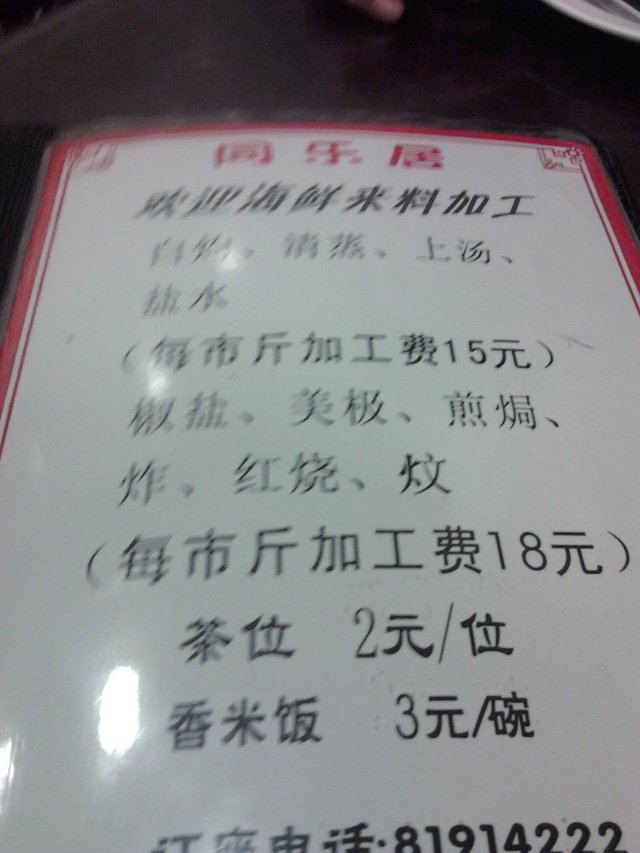 同乐居
欢迎海鲜来料加工
白灼、清蒸、上汤、
盐水
(每市斤加工费15元)
椒盐、美极、煎焗、
炸、红烧、炆
(每市斤加工费18元)
茶位 2元/位
香米饭 3元/碗
订座电话:81914222